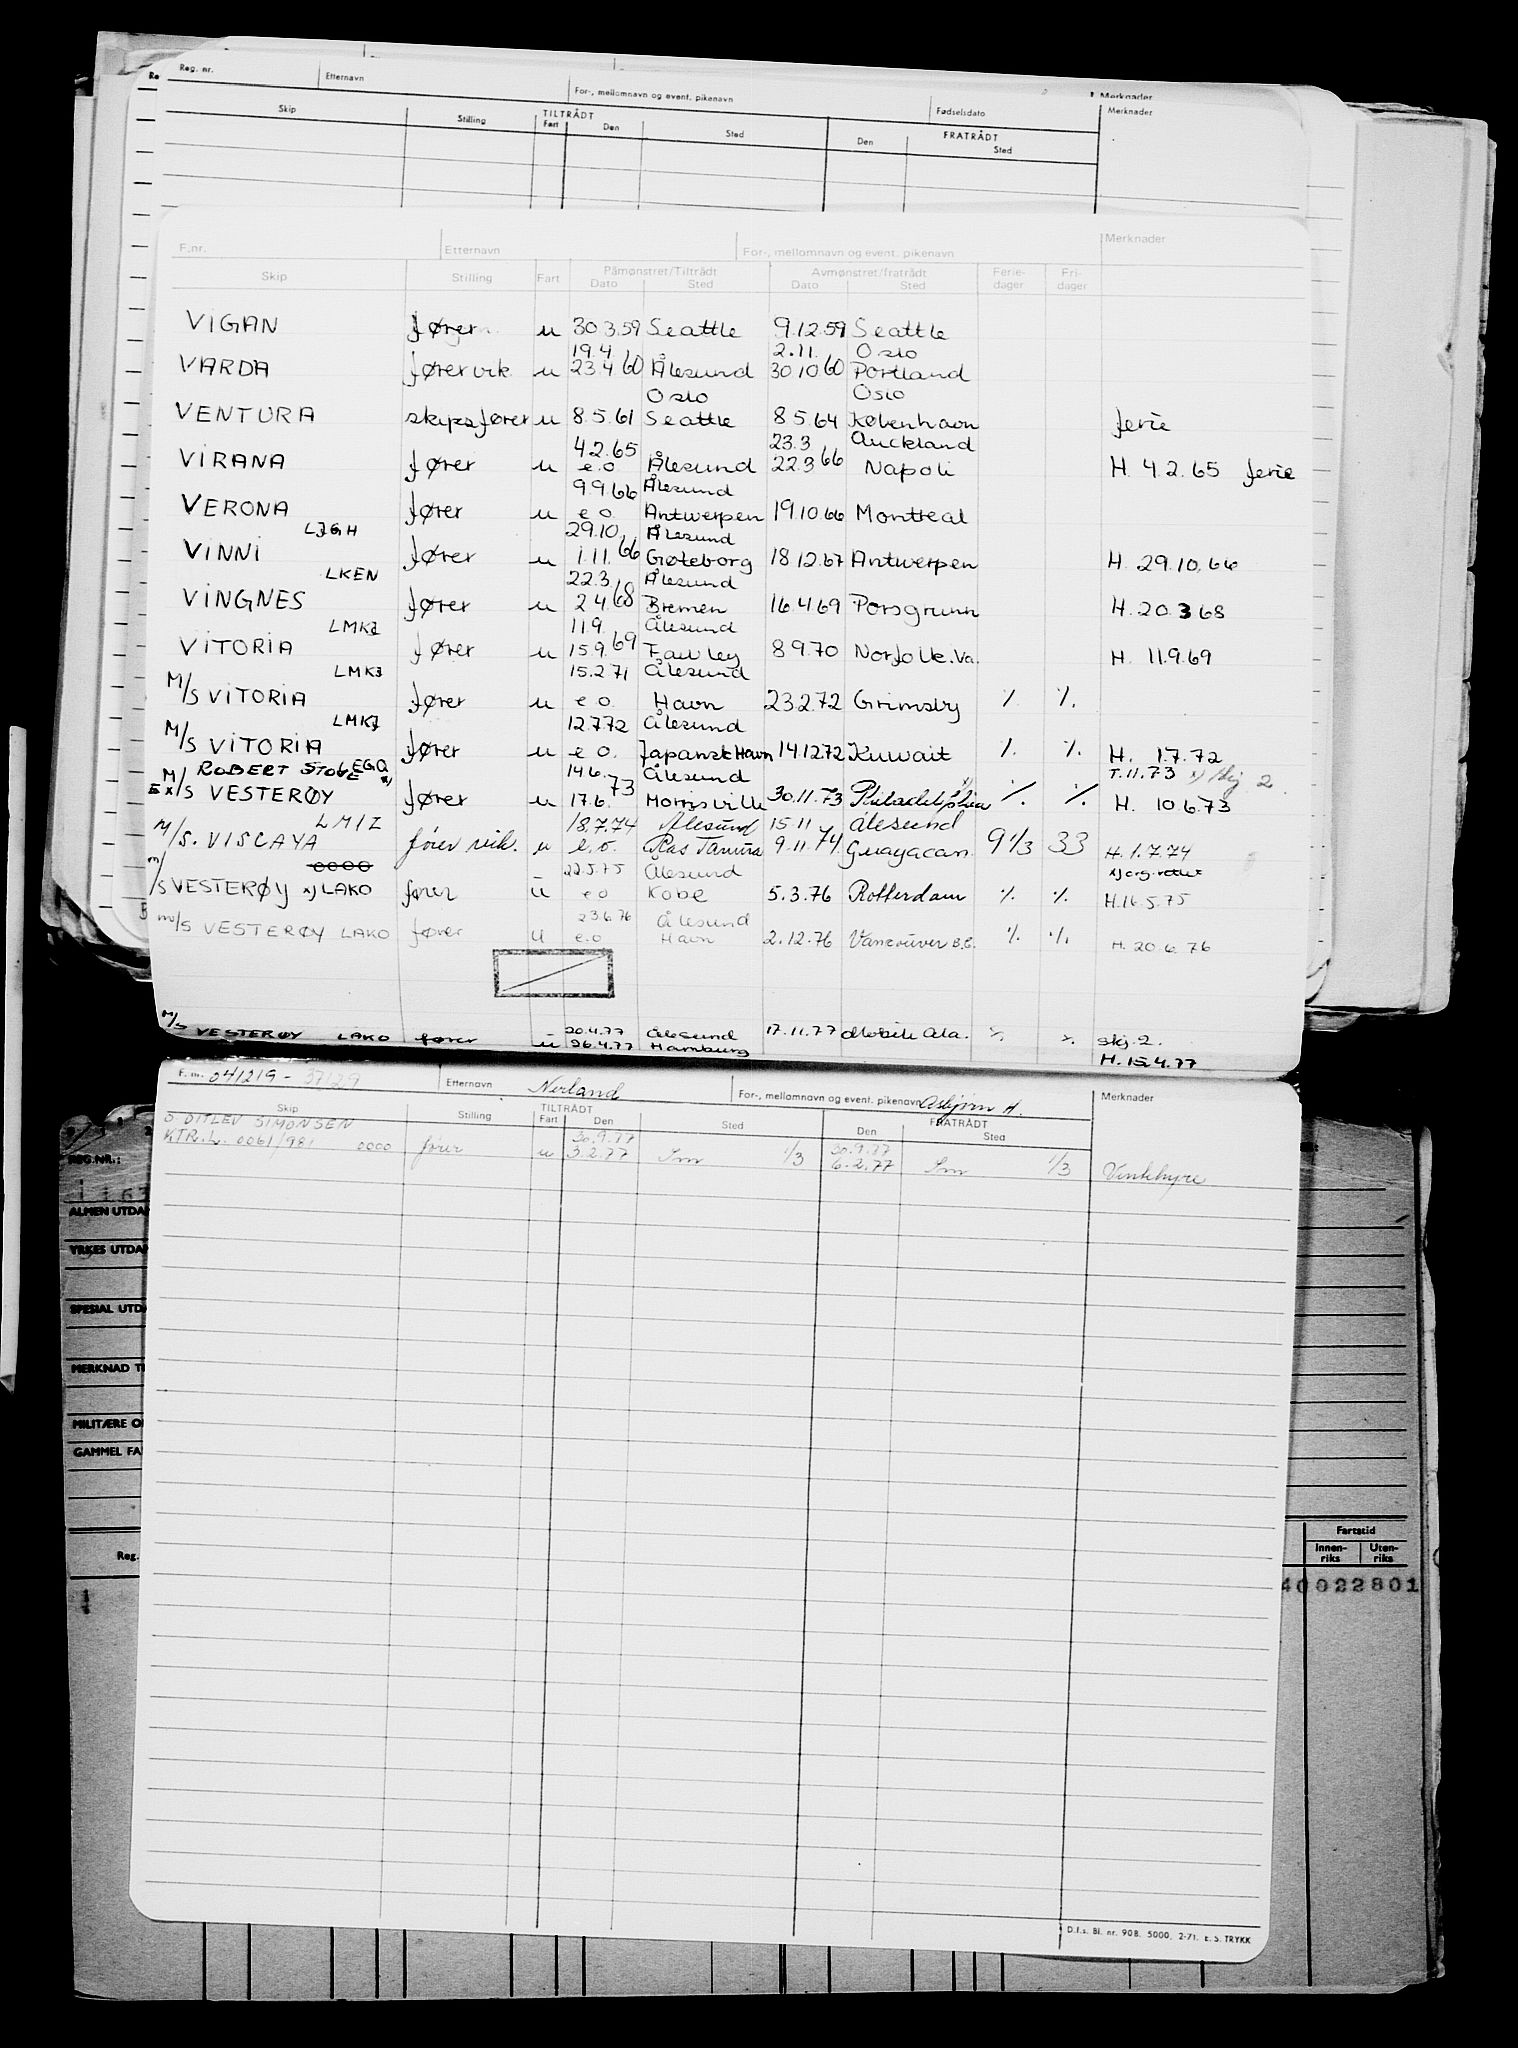 Reg. nr. Etternavn For-, mellomnavn og event. pikenavn Fødselsdato Merknader
Skip Stilling TILTRÅDT Fart Den Sted FRATRÅDT Den Sted Merknader
F.nr. Etternavn For-, mellomnavn og event. pikenavn Merknader
Skip Stilling Fart Påmønstret/Tiltrådt Dato Sted Avmønstret/fratrådt Dato Sted Ferie-dager Fri-dager
VIGAN fører u 30.3.59 Seattle 9.12.59 Seattle
19.4. 2.11. Oslo
VARDA fører vik. u 23.4 60 Ålesund 30.10 60 Portland
Oslo Oslo
VENTURA skipsfører u 8.5.61 Seattle 8.5.64 København ferie
4.2.65 23.3 Auckland
VIRANA fører u e.o Ålesund 22.3 66 Napoli H. 4.2.65 ferie
9.9.66 Ålesund
VERONA fører u e o Antwerpen 19.10.66 Montreal
LJGH 29.10. Ålesund
VINNI fører u 1.11.66 Gøteborg 18.12.67 Antwerpen H. 29.10.66
LKEN 22.3. Ålesund
VINGNES fører u 2.4.68 Bremen 16.4.69 Porsgrunn H. 20.3.68
LMKJ 11.9. Ålesund
VITORIA fører u 15.9.69 Fawley 8.9.70 Norfolk.Va. H. 11.9.69
LMKJ 15.2.71 Ålesund
M/S VITORIA fører u e o Havn 23.2.72 Grimsby % %
LMKJ 12.7.72 Ålesund
M/S VITORIA fører u e o. Japansk Havn 14.12.72 Kuwait % % H. 1.7.72
M/ ROBERT STOVE LEGQ x) 14.6. Ålesund T.11.73 x) skj 2
Ex/S VESTERØY fører u 17.6. 73 Morrisville 30.11.73 Philadelphia x) % % H. 10.6.73
LMIZ 18.7.74 Ålesund 15.11 Ålesund
M/S. VISCAYA fører vik. u e.o. Ras Tanura 9.11.74 Guayacan. 9 1/3 33 H. 1.7.74
0000 22.5.75 Ålesund
m/S VESTERØY x) LAKO fører u e o Kobe 5.3.76 Rotterdam % % H.16.5.75
23.6.76 Ålesund
m/S VESTERØY LAKO fører u e.o Havn 2.12.76 Vancouver B.C. % % H. 20.6.76
20.4.77 Ålesund
M/S VESTERØY LAKO fører u 26.4.77 Hamburg 17.11.77 Mobile Ala. % % skj.2.
H. 15.4.77
F. nr. 041219 - 37129 Etternavn Nerland For-, mellomnavn og event. pikenavn Asbjørn H. Merknader
Skip Stilling TILTRÅDT Fart Den Sted FRATRÅDT Den Sted
S DITLEV SIMONSEN 30.9.77 30.9.77
KTR.L. 0061/981 0000 fører u 3.2.77 Inn 1/3 6.2.77 Inn 1/3 Ventehyre
REG.NR.:
ALMEN UTDA
YRKES UTDA
SPESIAL UTDA
MERKNAD T
MILITÆRE O
GAMMEL FA
Fartstid
Reg. Innen-riks Uten-riks
40022801
D.f.s. Bl. nr. 90B. 5000, 2-71. E. S. TRYKK